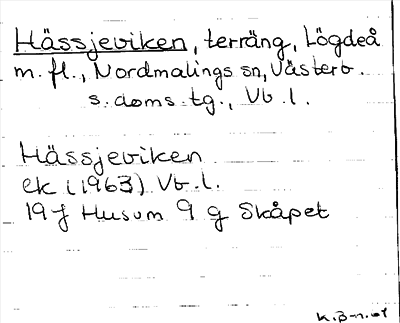 Hässjeviken, terräng, Lögdeå
m. fl., Nordmalings sn, Västerb.
s. doms. tg., Vb. l.
Hässjeviken
ek (1963) Vb. l.
19 f Husum 9 g Skåpet